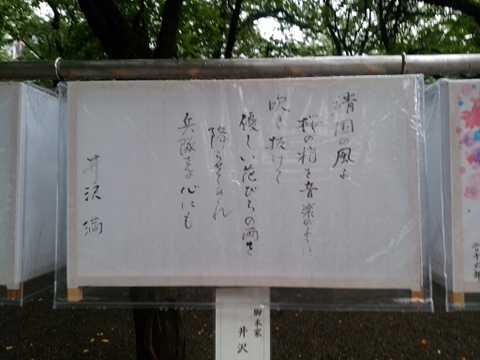 靖国の風よ
桜の梢を音楽のように
吹き抜けて
優しい花びらの雨を
降らせてくれ
兵隊さな心にも
井沢 満
脚本家
井沢